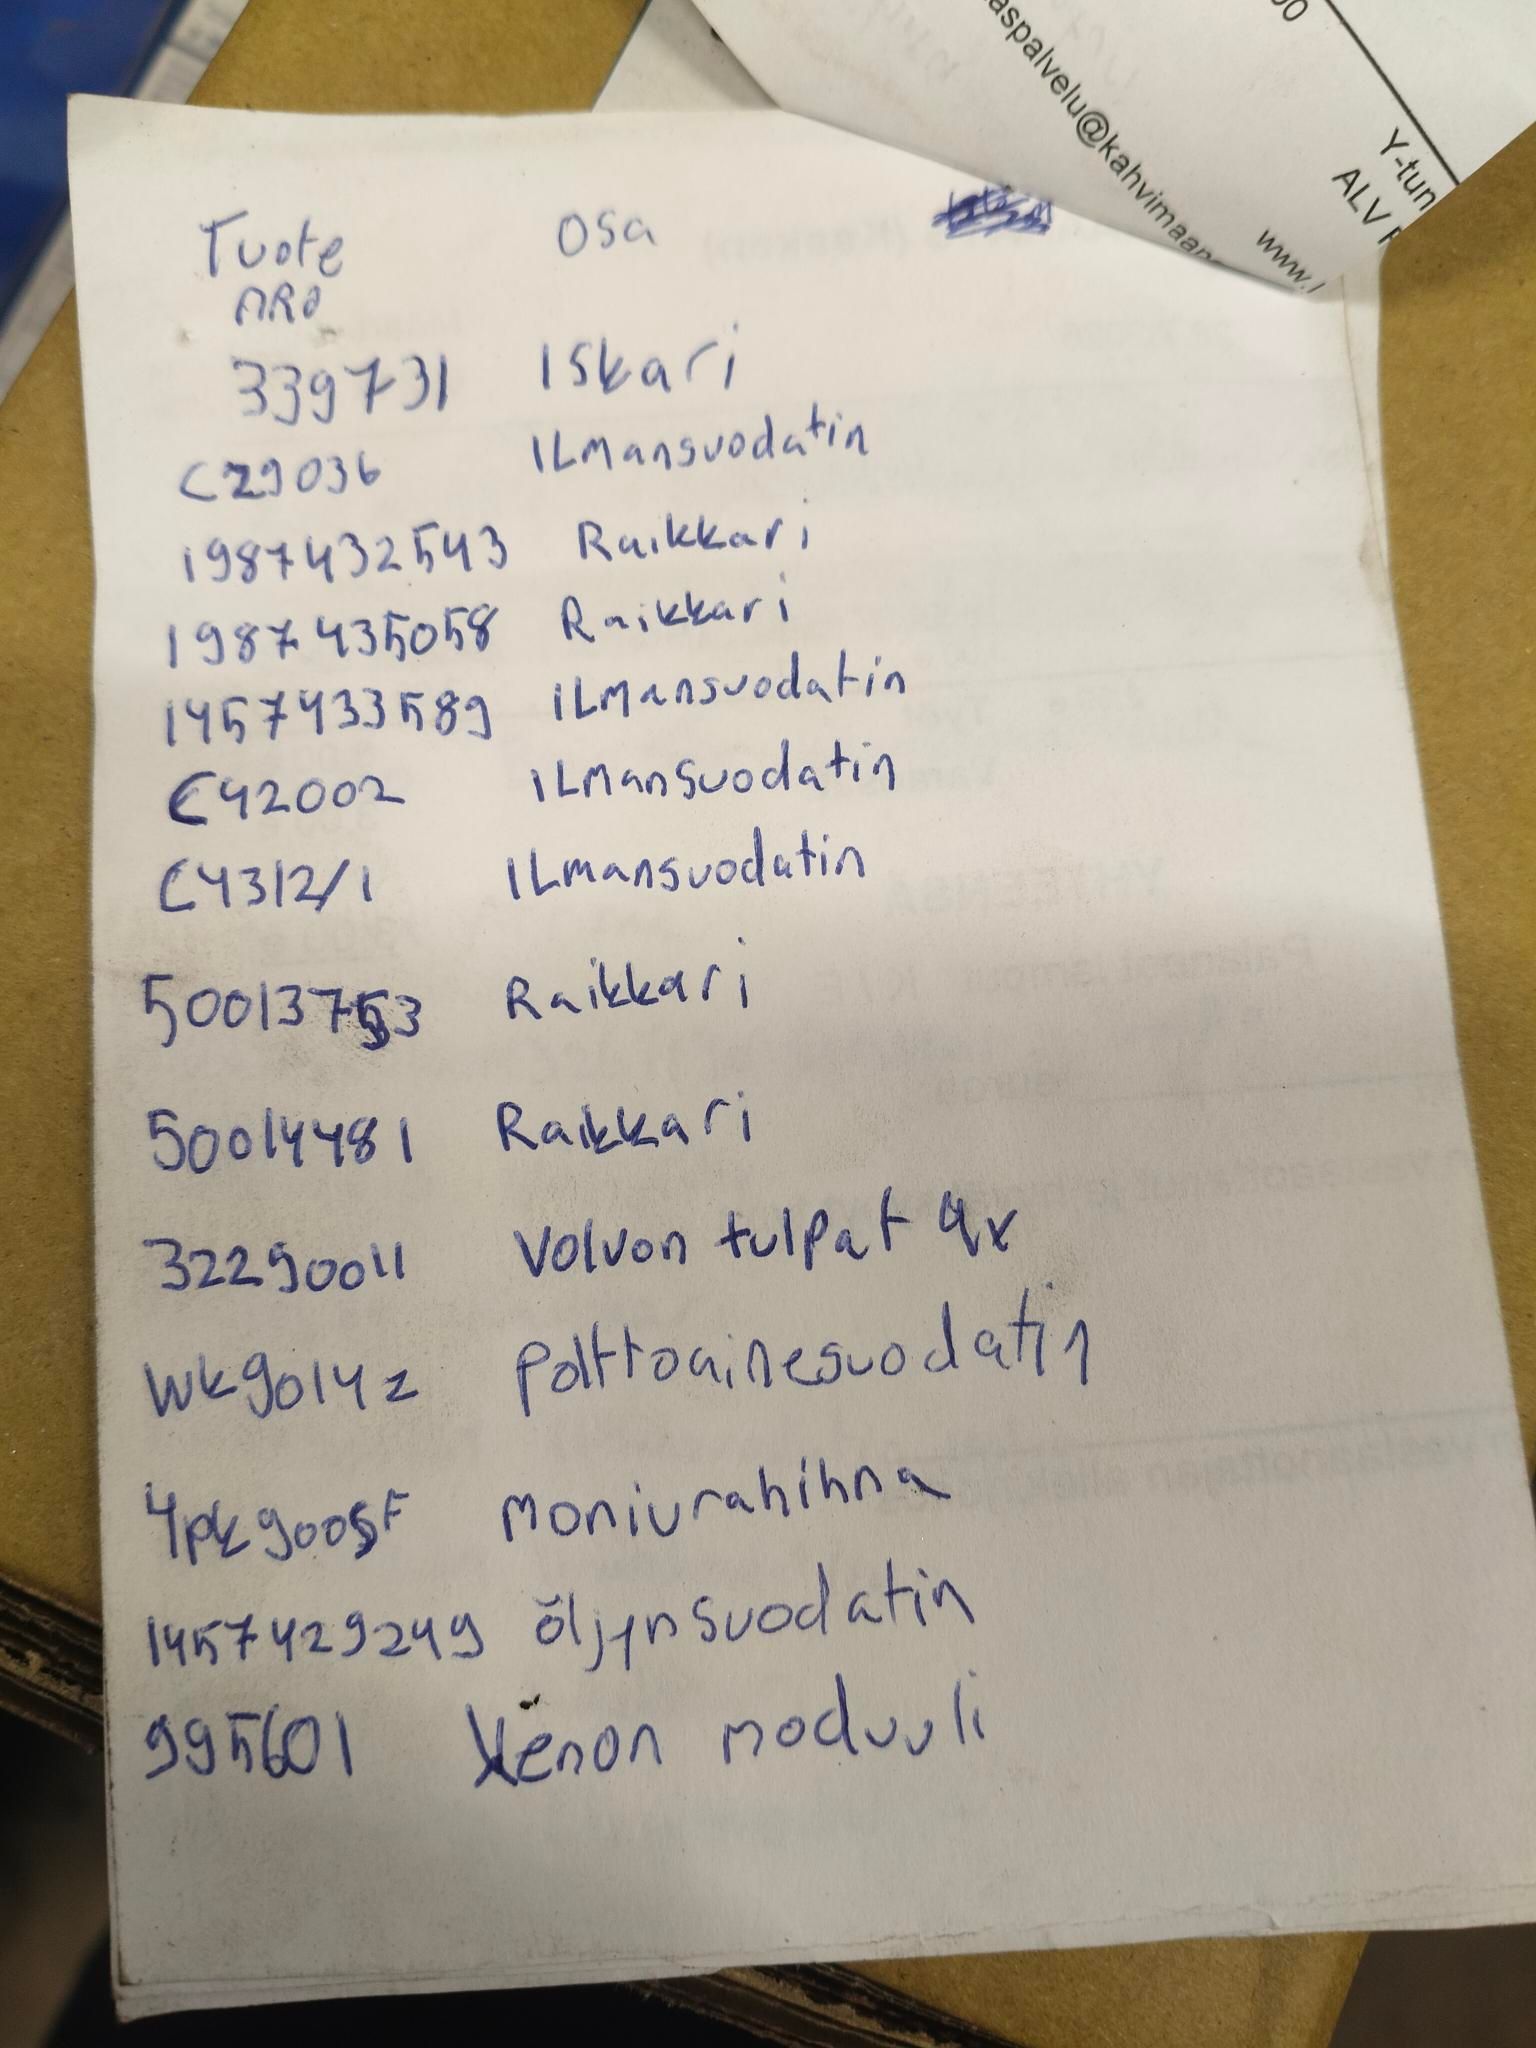 00
aspalvelu@kahvimaan
Y-tun
ALV
www.
Tuote osa
nRo
339731 Iskari
C29036 ILmansuodatin
1987432543 Raikkari
1987435058 Raikkari
1457433589 ILmansuodatin
C42002 ILmansuodatin
C4312/1 ILmansuodatin
50013753 Raikkari
50014481 Raikkari
32290011 Volvon tulpat 4x
wk9014z polttoainesuodatin
4pk900SF moniurahihna
1457429249 öljynsuodatin
995601 Xenon moduuli